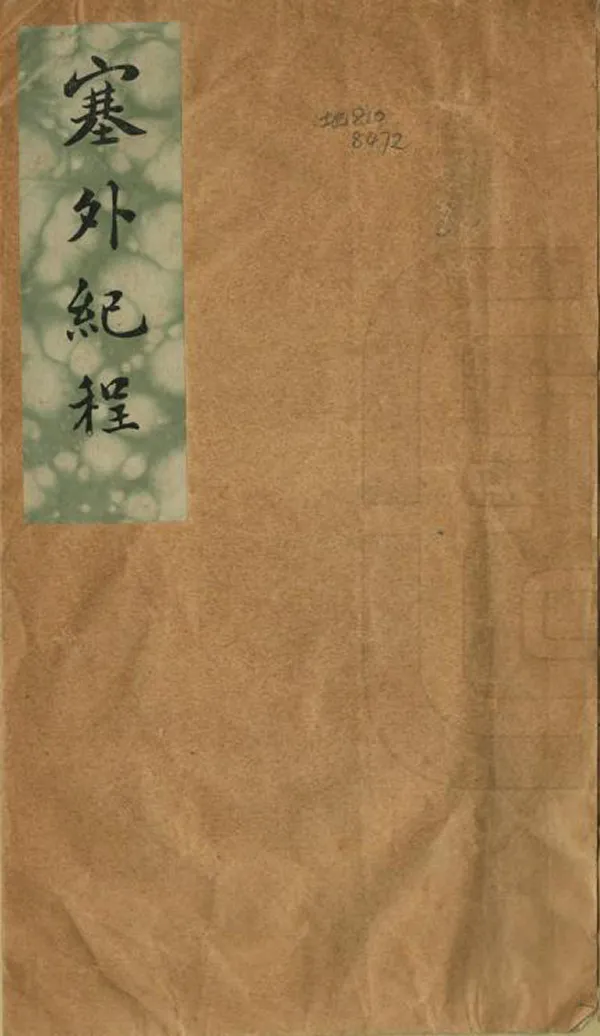 塞外紀程
地810
8472